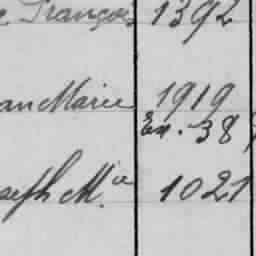 François 1392
an Marie 1919
En. 38
seph M.ie 1021